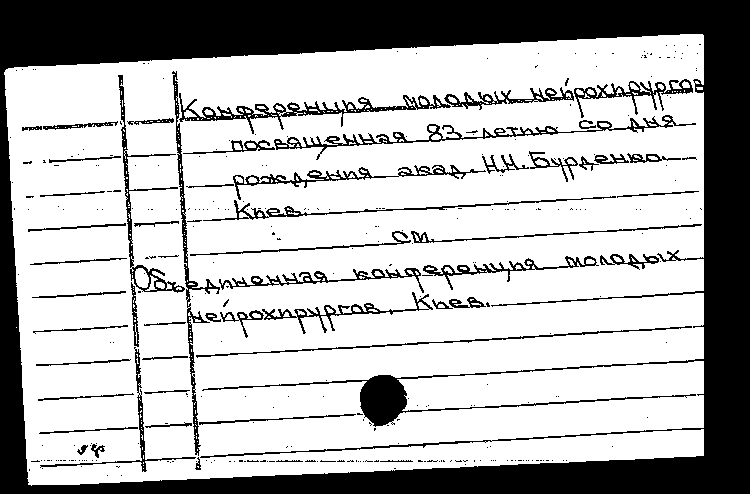 Конференция молодых нейрохирургов
посвященная 83-летию со дня
рождения акад. Н.Н. Бурденко.
Киев.
см.
Объединенная конференция молодых
нейрохирургов. Киев.